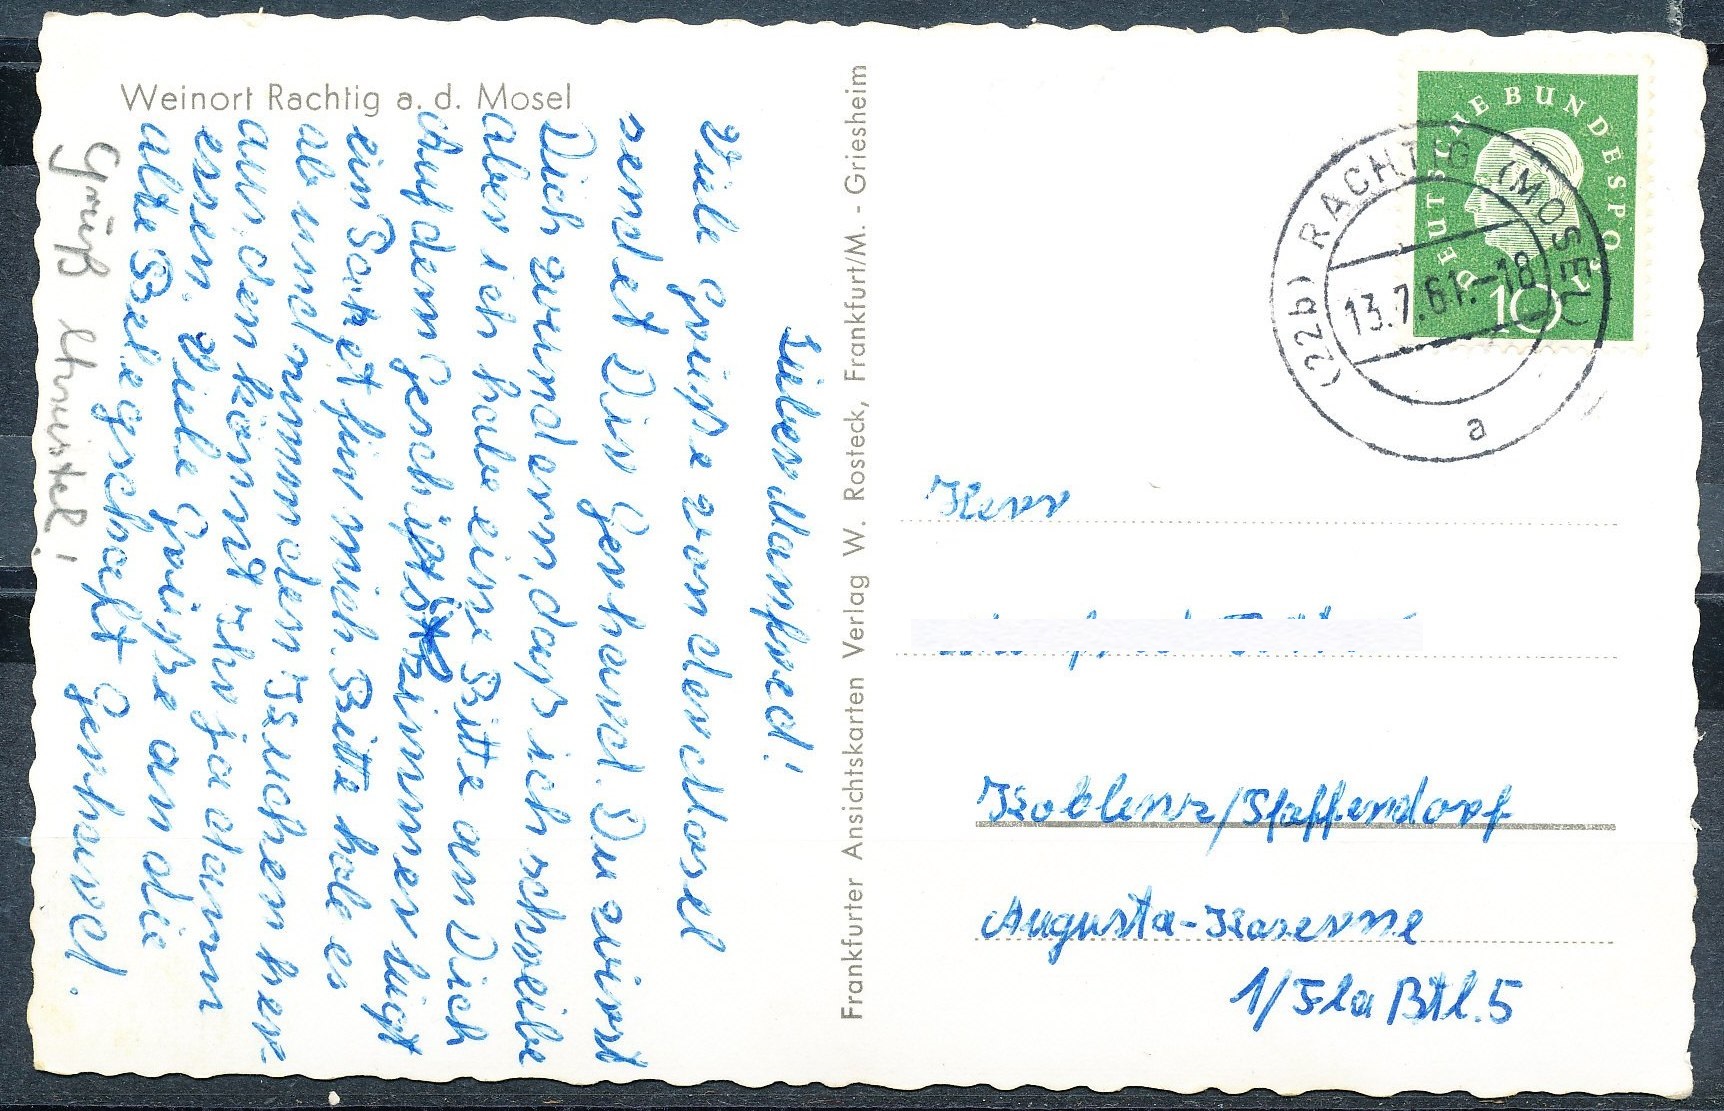 Weinort Rachtig a. d. Mosel
Lieber Manfred!
Viele Grüße von der Mosel
sendet Dir Gerhard. Du wirst
Dich wundern, daß ich schreibe
aber ich habe eine Bitte an Dich
Auf dem Geschäftszimmer liegt
ein Paket für mich. Bitte hole es
ab und nimm den Kuchen her-
aus, den könnt Ihr ja dann
essen. Viele Grüße an die
alte Belegschaft Gerhard.
Gruß Christel!
Frankfurter Ansichtskarten Verlag W. Rosteck, Frankfurt/M. - Griesheim
DEUTSCHE BUNDESPOST
10
(22b) RACHTIG (MOSEL)
13.7.61.-18
a
Herr
Koblenz/Pfaffendorf
Augusta-Kaserne
1/Fla Btl. 5